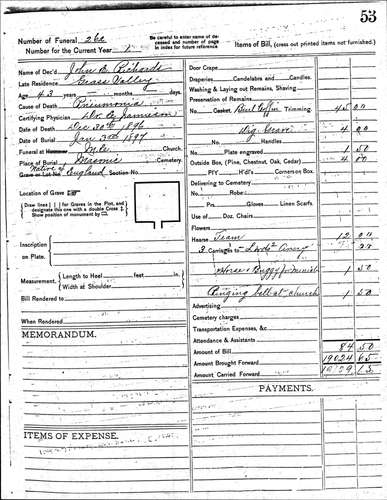 53
Number of Funeral 262
Number for the Current Year 2
Be careful to enter name of deceased and number of page in index for future reference
Items of Bill, (cross out printed items not furnished.)
Name of Dec'd John B. Richards
Late Residence Grass Valley
Age 43 years - months - days
Cause of Death Pneumonia
Certifying Physician Dr. Jamison
Date of Death Dec 30th 1896
Date of Burial Jan 3rd 1897
Funeral at M.E. Church.
Place of Burial, Masonic Cemetery.
Native of
Grave or Lot No. England Section No.
Location of Grave
Draw lines | | for Graves in the Plot, and designate this one with a double Cross
Show position of monument by
Inscription on Plate.
Measurement, Length to Heel feet in.
Width at Shoulder
Bill Rendered to
When Rendered
MEMORANDUM.
ITEMS OF EXPENSE.
Door Crape
Draperies Candelabra and Candles.
Washing & Laying out Remains, Shaving
Preservation of Remains
No Casket, Burl Coffin Trimming. 45 00
Dig. Grave 4 00
No. Handles
No. Plate engraved 1 50
Outside Box (Pine, Chestnut, Oak, Cedar) 4 00
PIY H'dl's Corners on Box.
Delivering to Cemetery
No. Robe:
No. Prs. Gloves: Linen Scarfs.
Use of Doz. Chairs.
Flowers
Hearse Team 12 00
3 Carriages to
Horse & Buggy for minister 1 50
Ringing bell at church 1 50
Advertising
Cemetery charges
Transportation Expenses, &c.
Attendance & Assistants
Amount of Bill 84 50
Amount Brought Forward 19024 65
Amount, Carried Forward
PAYMENTS.